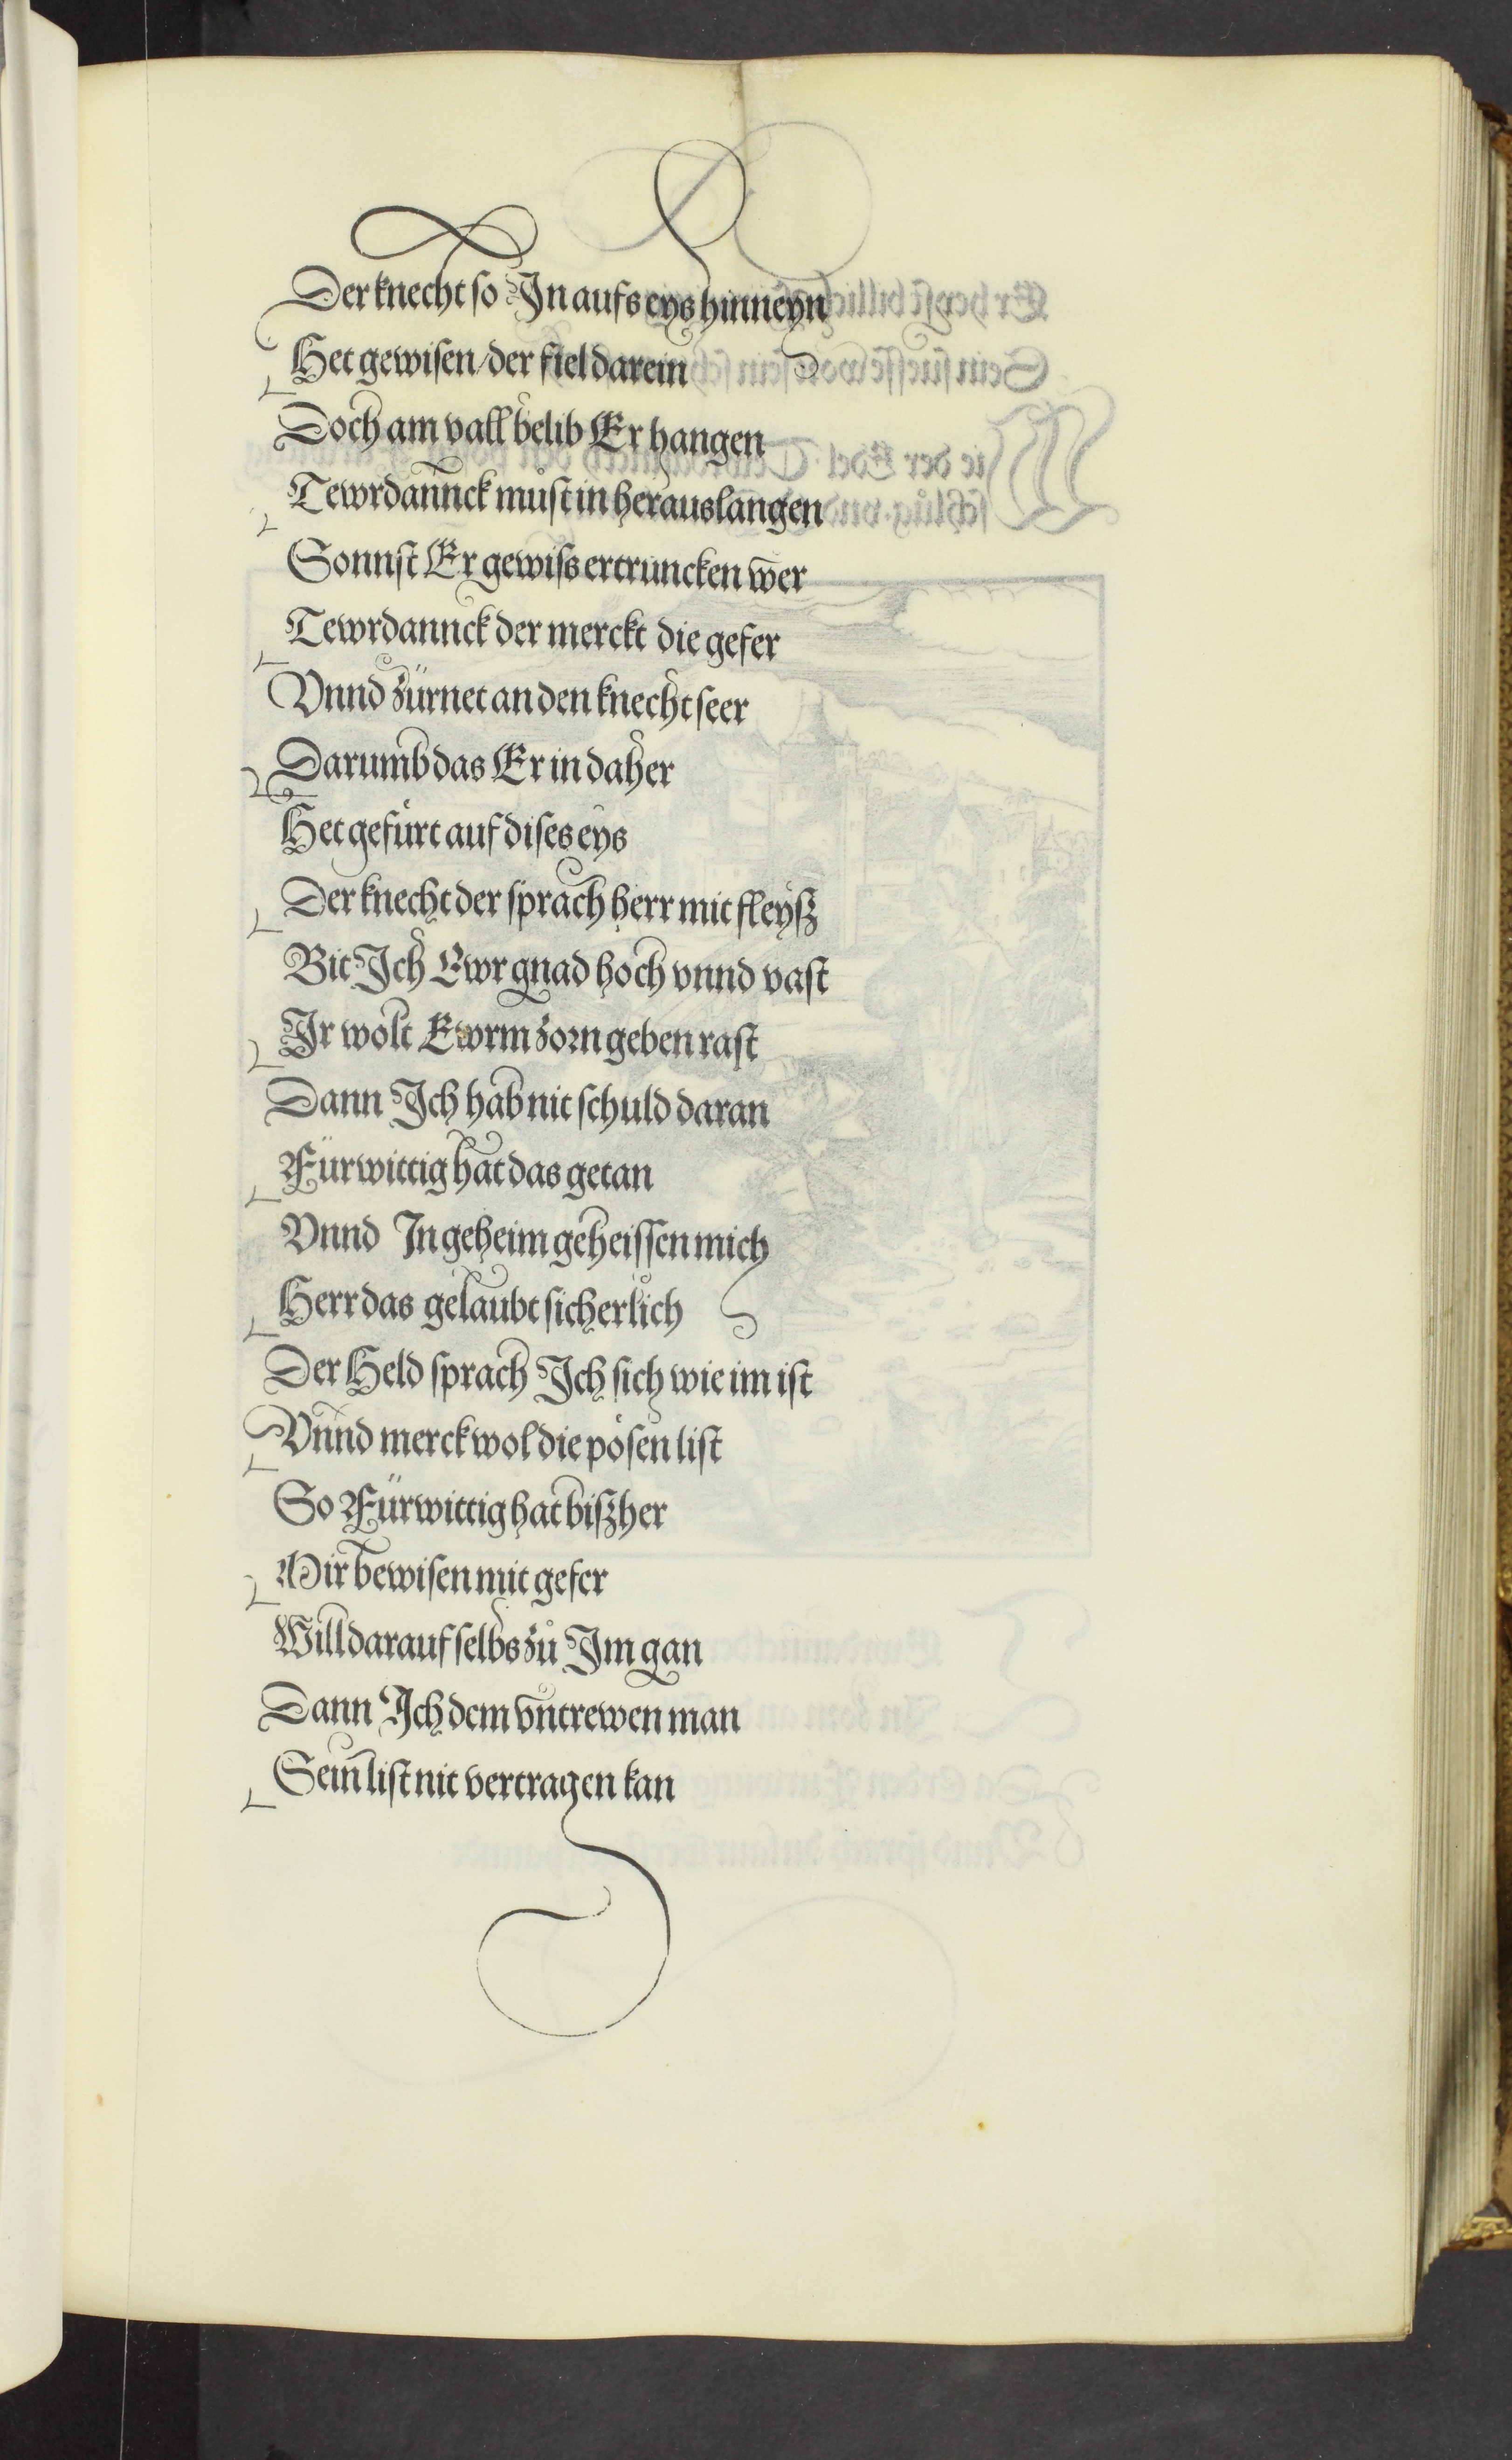 Der knecht so In aufs eys hinneyn
Het gewisen/der fiel darein
Doch am vall belib Er hangen
Tewrdannck můst in herauslangen
Sonnst Er gewiss ertruncken wer
Tewrdannck der merckt die gefer
Vnnd zürnet an den knecht seer
Darumb das Er in daher
Het gefürt auf dises eys
Der knecht der sprach herr mit fleysz
Bit Ich Ewr gnad hoch vnnd vast
Ir wolt Ewrm zorn geben rast
Dann Ich hab nit schuld daran
Fürwittig hat das getan
Vnnd In geheim geheissen mich
Herr das gelaubt sicherlich
Der Held sprach Ich sich wie im ist
Vnnd merck wol die pösen list
So Fürwittig hat biszher
Mir bewisen mit gefer
Will darauf selbs zů Im gan
Dann Ich dem vntrewen man
Sein list nit vertragen kan